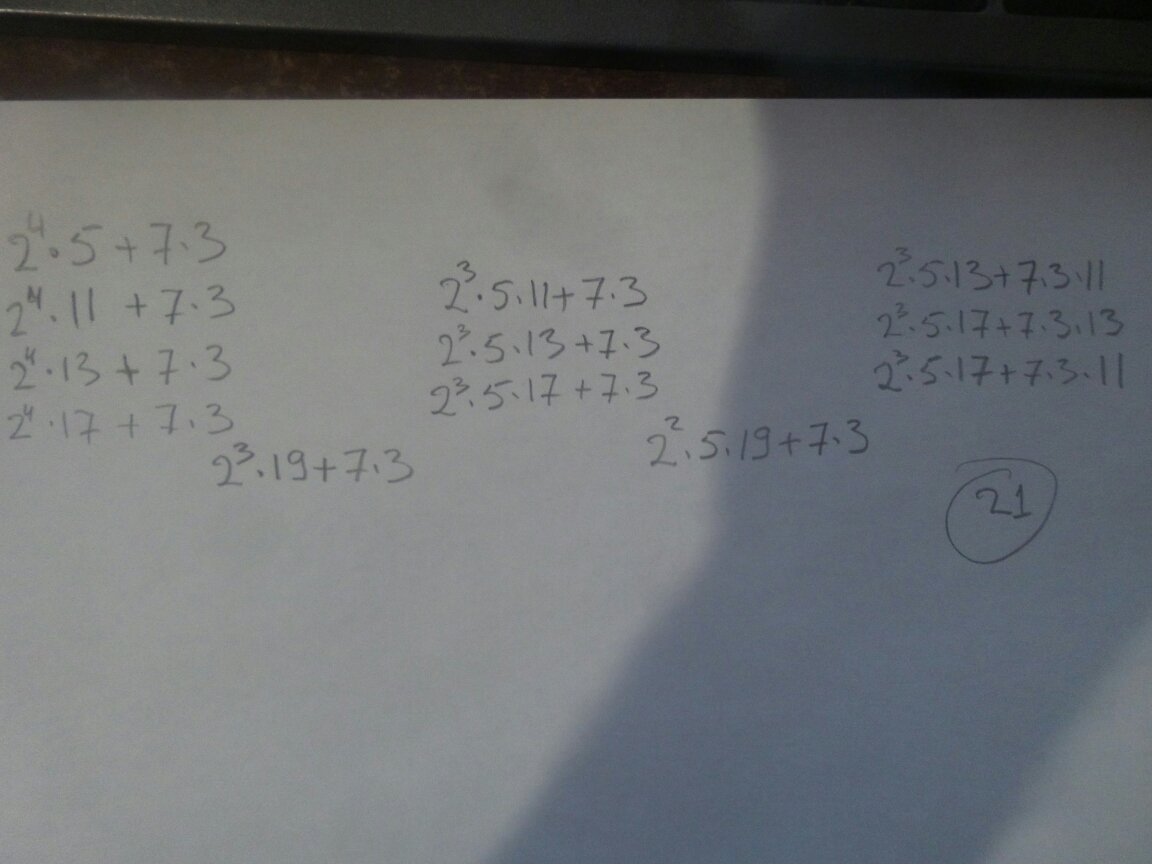 2⁴·5+7·3
2⁴·11+7·3
2⁴·13+7·3
2⁴·17+7·3
2³·19+7·3
2³·5·11+7·3
2³·5·13+7·3
2³·5·17+7·3
2²·5·19+7·3
2³·5·13+7·3·11
2³·5·17+7·3·13
2³·5·17+7·3·11
21